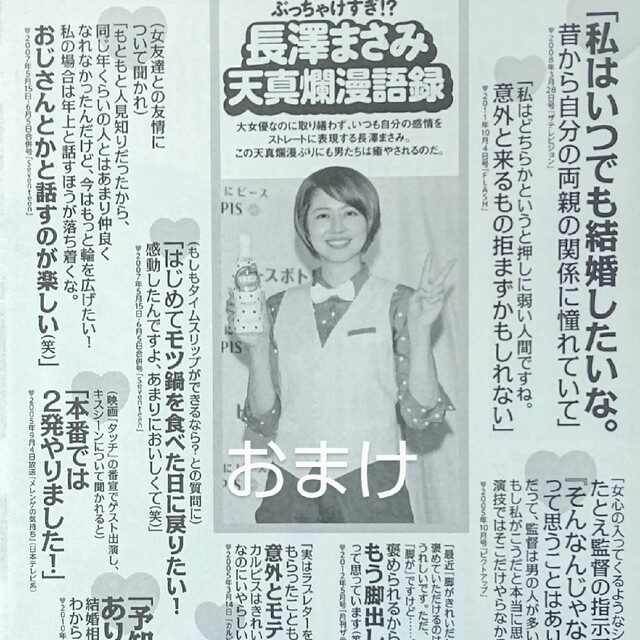 ぶっちゃけすぎ!?
長澤まさみ
天真爛漫語録
大女優なのに取り繕わず、いつも自分の感情を
ストレートに表現する長澤まさみ。
この天真爛漫ぶりにも男たちは癒やされるのだ。
「私はいつでも結婚したいな。
昔から自分の両親の関係に憧れていて」
2008年3月28日号「ザテレビジョン」
「私はどちらかというと押しに弱い人間ですね。
意外と来るもの拒まずかもしれない」
2011年10月4日号「FLASH」
(女友達との友情に
ついて聞かれ)
「もともと人見知りだったから、
同じ年くらいの人とはあまり仲良く
なれなかったんだけど、今はもっと輪を広げたい!
私の場合は年上と話すほうが落ち着くな。
おじさんとかと話すのが楽しい(笑)」
2007年5月15日・6月5日合併号「Seventeen」
(もしもタイムスリップができるなら?との質問に)
「はじめてモツ鍋を食べた日に戻りたい!
感動したんですよ、あまりにおいしくて(笑)」
2007年5月15日・6月5日合併号「Seventeen」
(映画『タッチ』の番宣でゲスト出演し、
キスシーンについて聞かれると)
「本番では
2発やりました!」
2005年9月4日放送「メレンゲの気持ち」(日本テレビ系)
にピース
PIS
ースポト
PIS
おまけ
「女心の入ってくるようなシ
たとえ監督の指示
『そんなんじゃな
って思うことはあ
だって、監督は男の人が多い
もし私がこうだと本当に思
演技ではそこだけやらなか
2005年10月号「ピクトアップ」
「最近『脚がきれいだ
褒めていただけるのは
うれしいです。ただ、
『脚が』ですけど……
褒められるから
もう脚出し
って思っています(笑)
2012年5月号「月刊ザテ
「実はラブレターを
もらったことも
意外とモテ
カルピスはきれい
なのにいやらしい
2005年3月14日「カル
「予知
あり
結婚相
わから
2010年